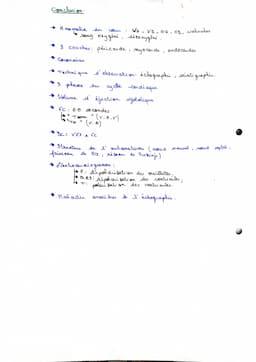 Conclusion
→ Anatomie du cœur : VG - VD - OG - OD, valvules
→ sang oxygéné, désoxygéné
→ 3 couches : péricarde, myocarde, endocarde
→ Coronaires
→ Technique d'observation échographie, scintigraphie
→ 3 phases du cycle cardiaque
→ Volume d'éjection systolique
→ FC : secondes
→ DC : VES x FC
→ Structure de l'automatisme (nœud sinusal, nœud
faisceau de His, réseau de Purkinje)
→ Electrocardiogramme :
P : dépolarisation des oreillettes
QRS : dépolarisation des ventricules
T : polarisation des ventricules
→ l'échographie.